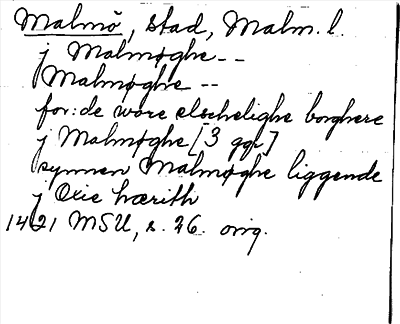 Malmö, stad, Malm. l.
j Malmøghe --
Malmøghe --
for: de wore elschelighe borghere
j Malmøghe [3 ggr]
synnen Malmøghe liggende
j Oxie hærith
1421 MSU, s. 26. orig.